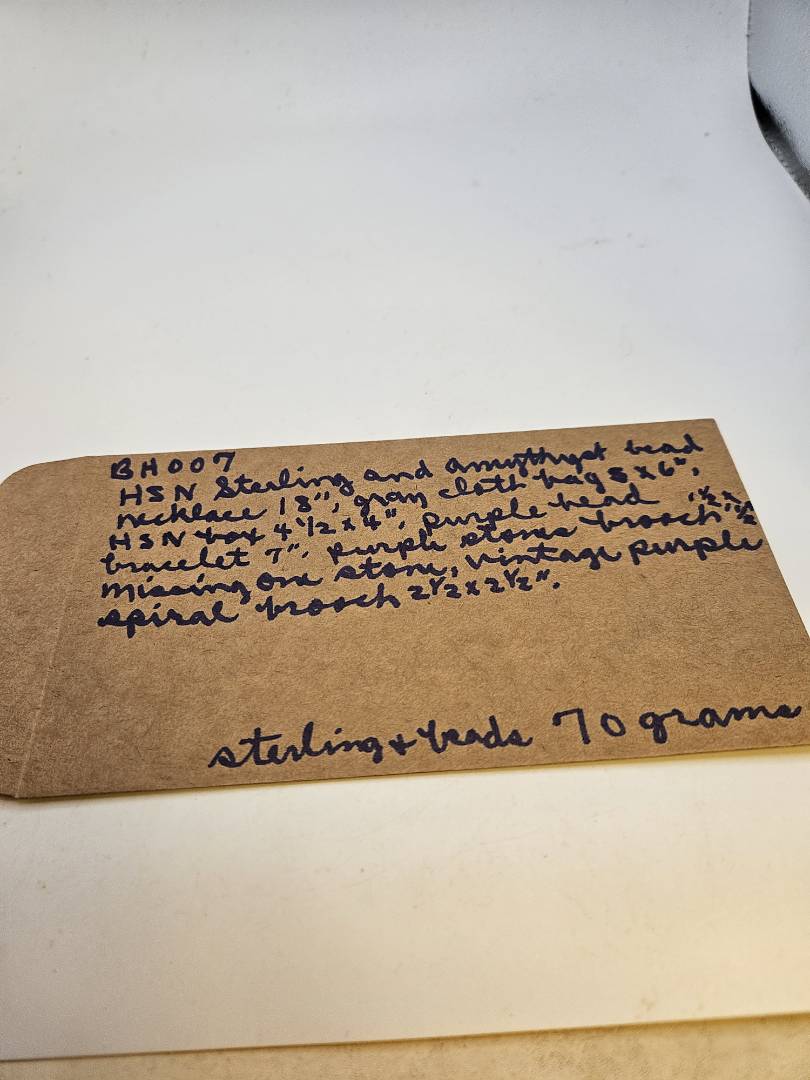 BH007
HSN Sterling and amythyst bead
necklace 18", gray cloth bag 8 x 6",
HSN box 4 1/2 x 4", purple bead
bracelet 7", purple stones brooch 1 1/2 x 1 1/2"
missing one stone, vintage purple
spiral brooch 2 1/2 x 2 1/2".
sterling + beads 70 grams